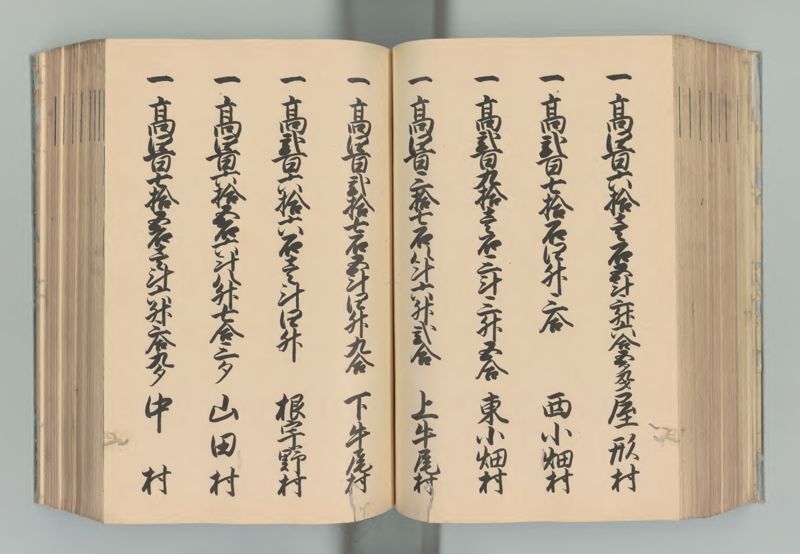 一高四百六拾壱石五斗三升六合五夕 屋形村
一高弐百七拾石四升三合 西小畑村
一高弐百九拾壱石三斗三升五合 東小畑村
一高四百三拾七石八斗六升弐合 上牛尾村
一高四百弐拾七石五斗四升九合 下牛尾村
一高弐百六拾六石壱斗四升 根宇野村
一高四百六拾五石六斗八升七合三夕 山田村
一高四百七拾五石壱斗八升三合九夕 中村